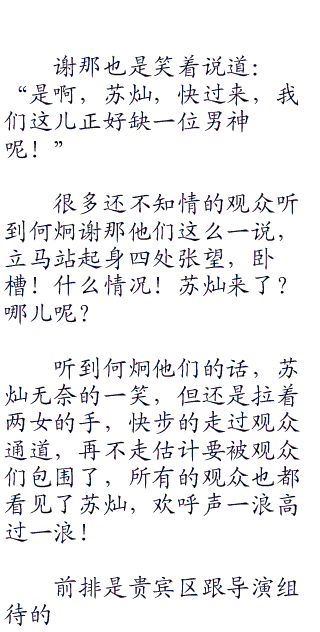 谢那也是笑着说道：
“是啊，苏灿，快过来，我
们这儿正好缺一位男神
呢！”
很多还不知情的观众听
到何炯谢那他们这么一说，
立马站起身四处张望，卧
槽！什么情况！苏灿来了？
哪儿呢？
听到何炯他们的话，苏
灿无奈的一笑，但还是拉着
两女的手，快步的走过观众
通道，再不走估计要被观众
们包围了，所有的观众也都
看见了苏灿，欢呼声一浪高
过一浪！
前排是贵宾区跟导演组
待的